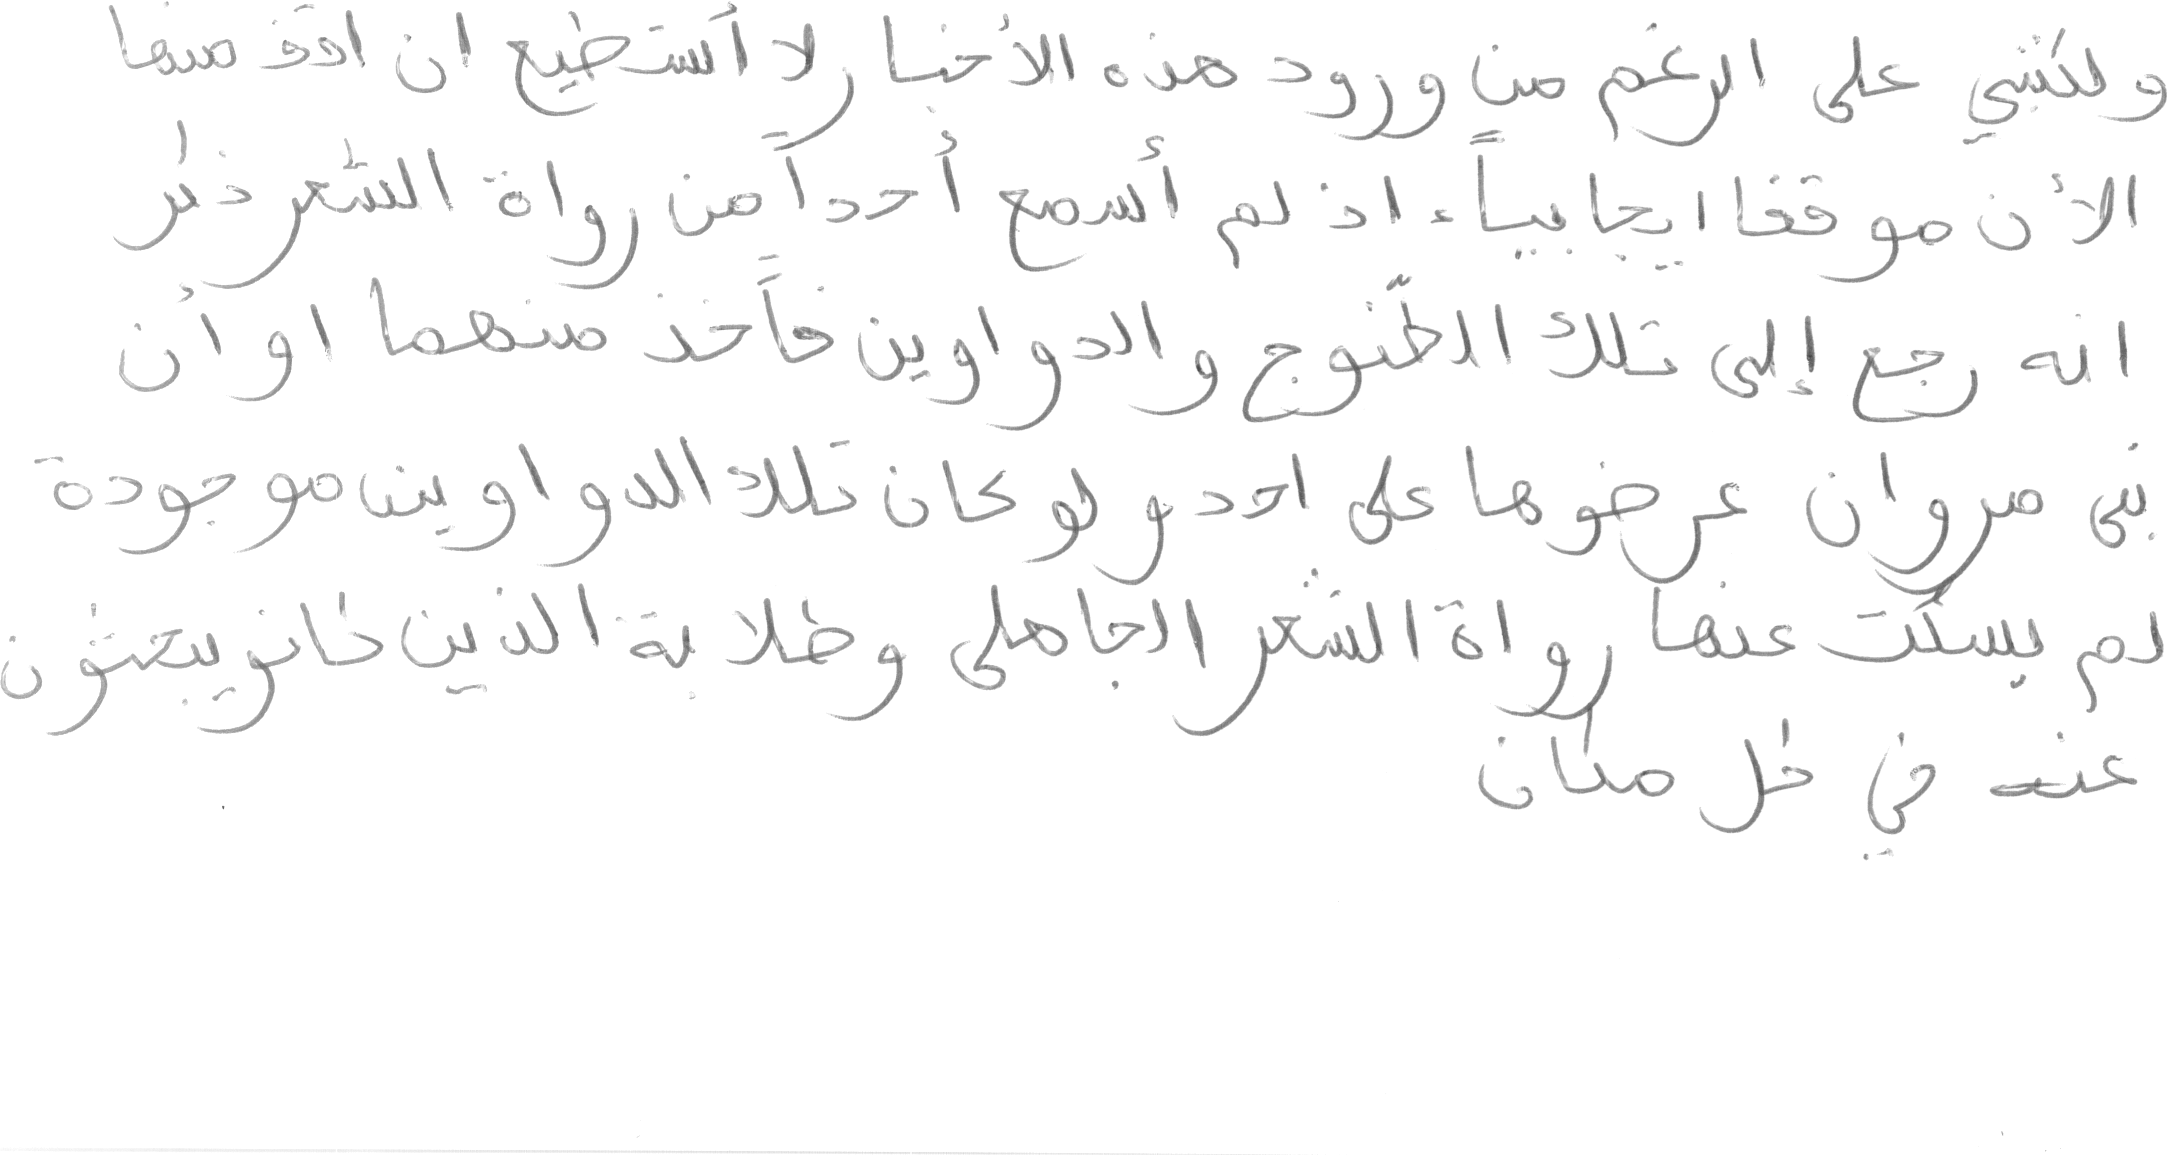 ولكنني على الرغم من ورود هذه الأخبار لا أستطيع ان اقف منها
الأن موقفا ايجابياً، اذ لم أسمع أحداً من رواة الشعر ذكر
انه رجع إلى تلك الطنّوج والدواوين فأخذ منهما او أن
بنى مروان عرضوها على احد ولو كان تلك الدواوين موجودة
لم يسكت عنها رواة الشعر الجاهلى وطلابة الذين كانو يبحثون
عنه في كل مكان